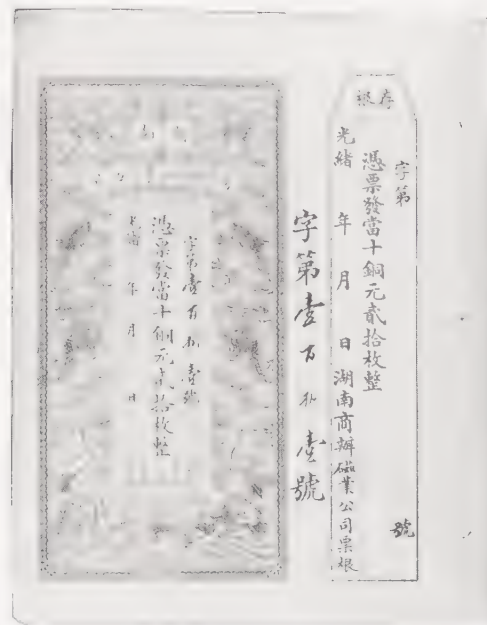 存根
字第
號
憑票發當十銅元貳拾枚整
光緒 年 月 日湖南商辦磁業公司票根
字第壹百 壹號
字第壹百 壹號
憑票發當十銅元貳拾枚整
光緒 年 月 日